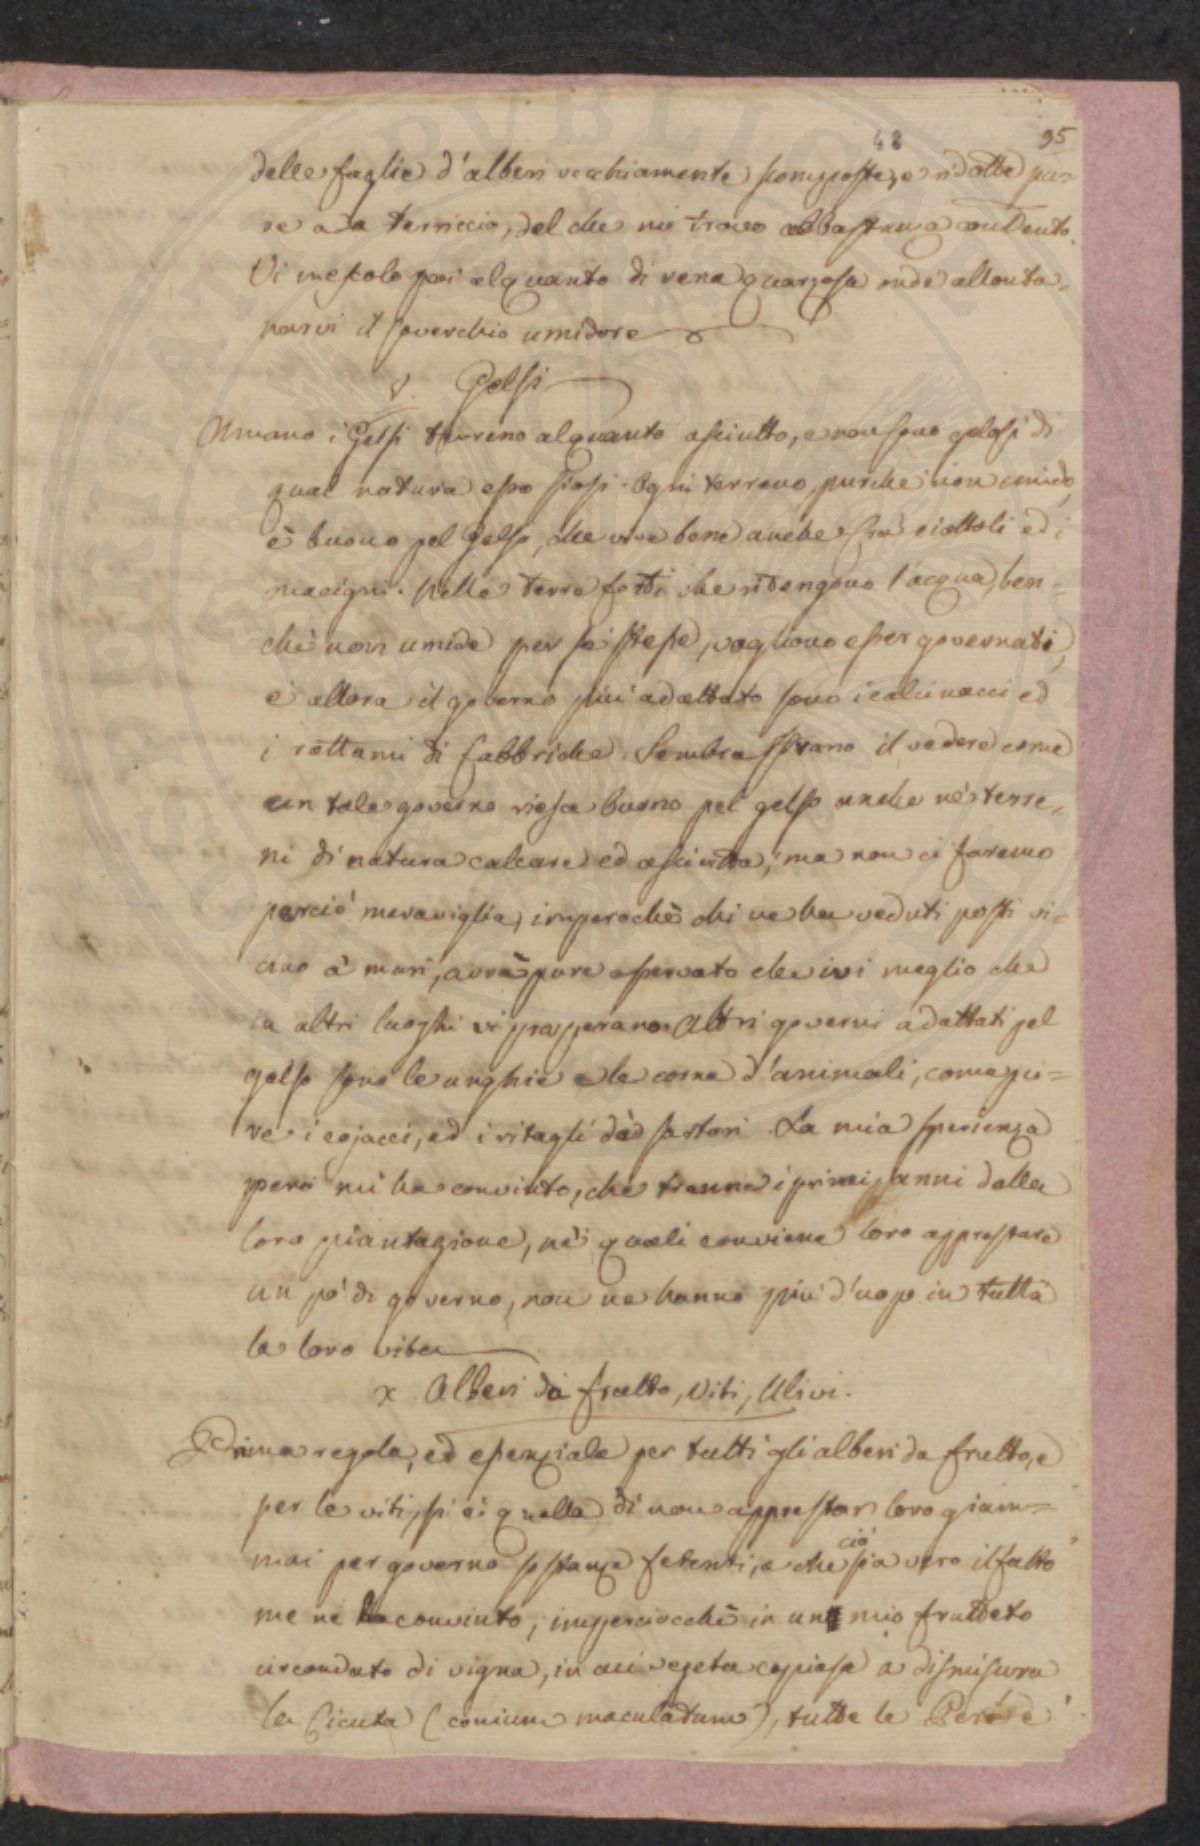 48 95
delle foglie d'alberi vecchiamente scomposte, e ridotte pu-
re a terriccio, del che mi trovo abbastanza contento.
Vi mescolo poi alquanto di rena quarzosa onde allonta-
narvi il soverchio umidore
V. Gelsi
Amano i Gelsi terreno alquanto asciutto, e non sono gelosi di
qual natura esso siasi. Ogni terreno, purchè non umido,
è buono pel Gelso, che vive bene anche fra' ciottoli ed i
macigni. Nelle terre forti che ritengono l'acqua, ben-
chè non umide per se stesse, vogliono esser governati,
e allora il governo più adattato sono i calcinacci ed
i rottami di fabbriche. Sembra strano il vedere come
un tale governo riesca buono pel gelso anche ne' terre-
ni di natura calcare ed asciutta; ma non ci faremo
perciò meraviglia, imperochè chi ne ha veduti posti vi-
cino a' muri, avrà pure osservato che ivi meglio che
in altri luoghi vi prosperano. Altri governi adattati pel
gelso sono le unghie e le corna d'animali, come pu-
re i cojacci, ed i ritagli dei sartori. La mia sperienza
però mi ha convinto, che tranne i primi anni dalla
loro piantagione, nei quali conviene loro apprestare
un pò di governo, non ne hanno più d'uopo in tutta
la loro vita
X. Alberi da frutto, Viti, Ulivi.
Prima regola, ed essenziale per tutti gli alberi da frutto, e
per le viti, si è quella di non apprestar loro giam-
mai per governo sostanze fetenti, e che ciò sia vero il fatto
me ne ha convinto; imperciocchè in un mio frutteto
circondato di vigna, in cui vegeta copiosa a dismisura
la Cicuta (conium maculatum), tutte le Pere è